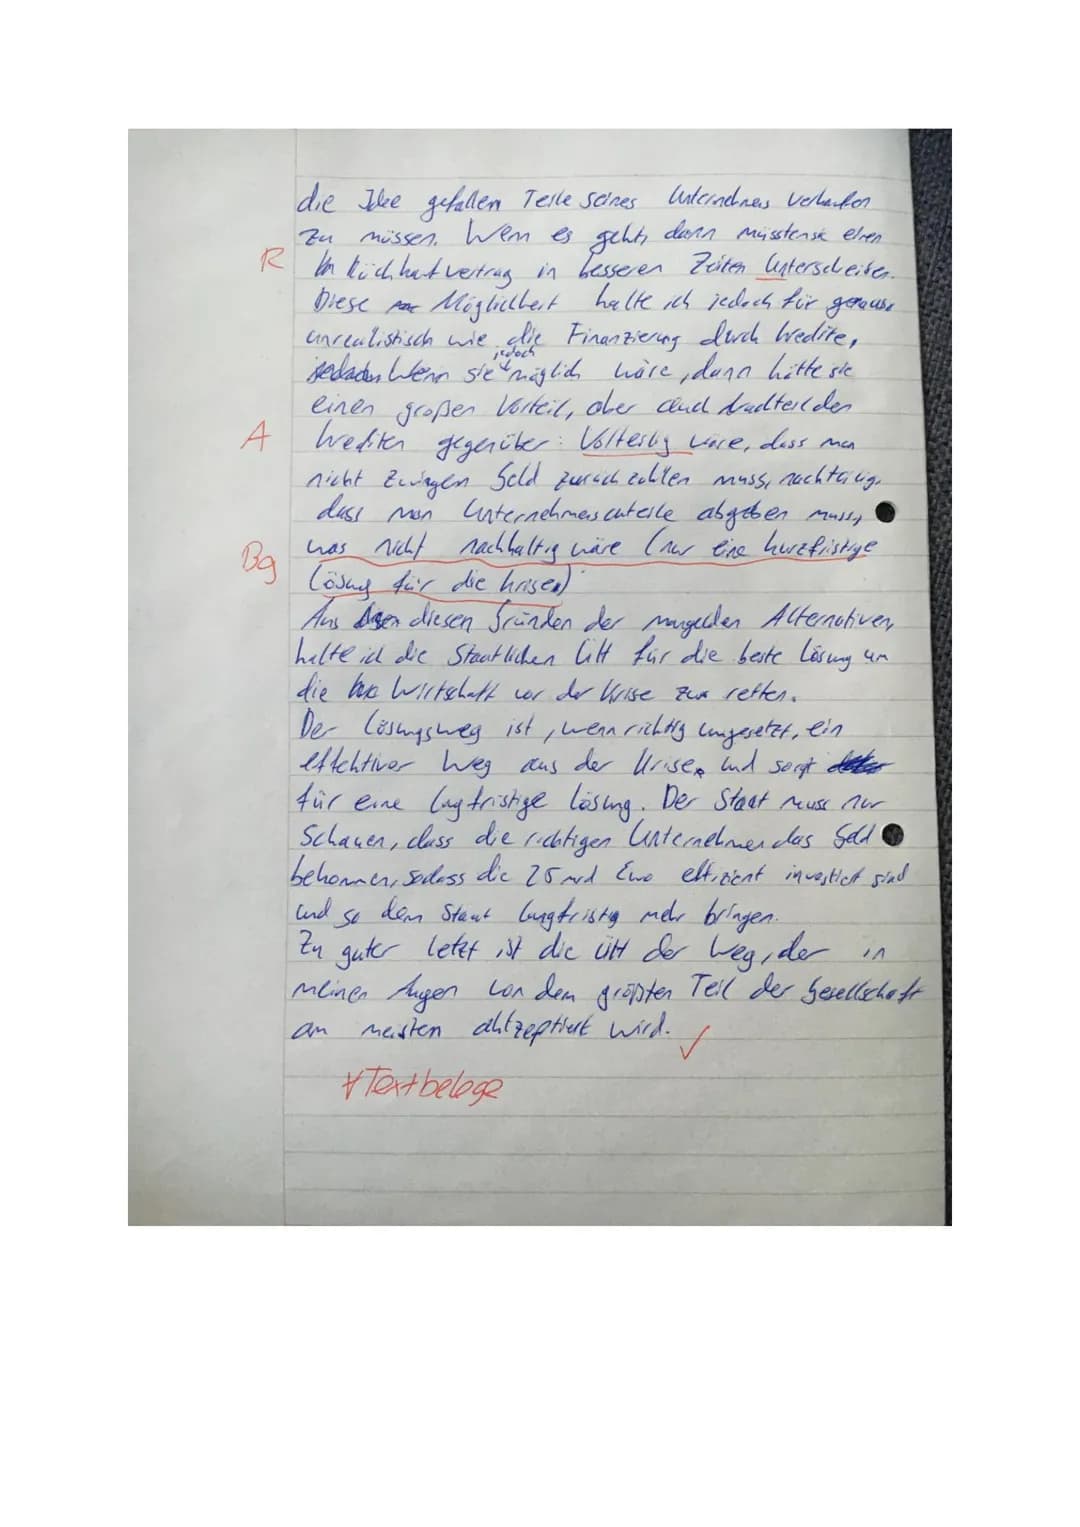 die Idee gefallen Teile seines Unternehmens verkaufen
zu müssen. Wenn es geht, dann müssten sie einen
R Rückkaufvertrag in besseren Zeiten Unterschreiben.
Diese Möglichkeit halte ich jedoch für genauso
unrealistisch wie die Finanzierung durch Kredite,
jedoch
Wenn sie möglich wäre, dann hätte sie
einen großen Vorteil, aber auch Nachteil den
A Krediten gegenüber: Vorteilig wäre, dass man
nicht zwingen Geld zurück zahlen muss, nachteilig,
dass man Unternehmensanteile abgeben muss,
Bg was nicht nachhaltig wäre (nur eine kurzfristige
Lösung für die Krisen)
Aus diesen Gründen der mangelden Alternativen,
halte ich die Staatlichen für die beste Lösung um
die Wirtschaft vor der Krise zu retten.
Der Lösungsweg ist, wenn richtig umgesetzt, ein
effektiver Weg aus der Krise und sorgt
für eine langfristige Lösung. Der Staat muss nur
Schauen, dass die richtigen Unternehmen das Geld
bekommen, sodass die 25 mrd Euro effizient investiert sind
und so dem Staat langfristig mehr bringen.
Zu guter letzt ist die der Weg, der in
meinen Augen von dem größten Teil der Gesellschaft
am meisten aktzeptiert wird. ✓
Textbelege